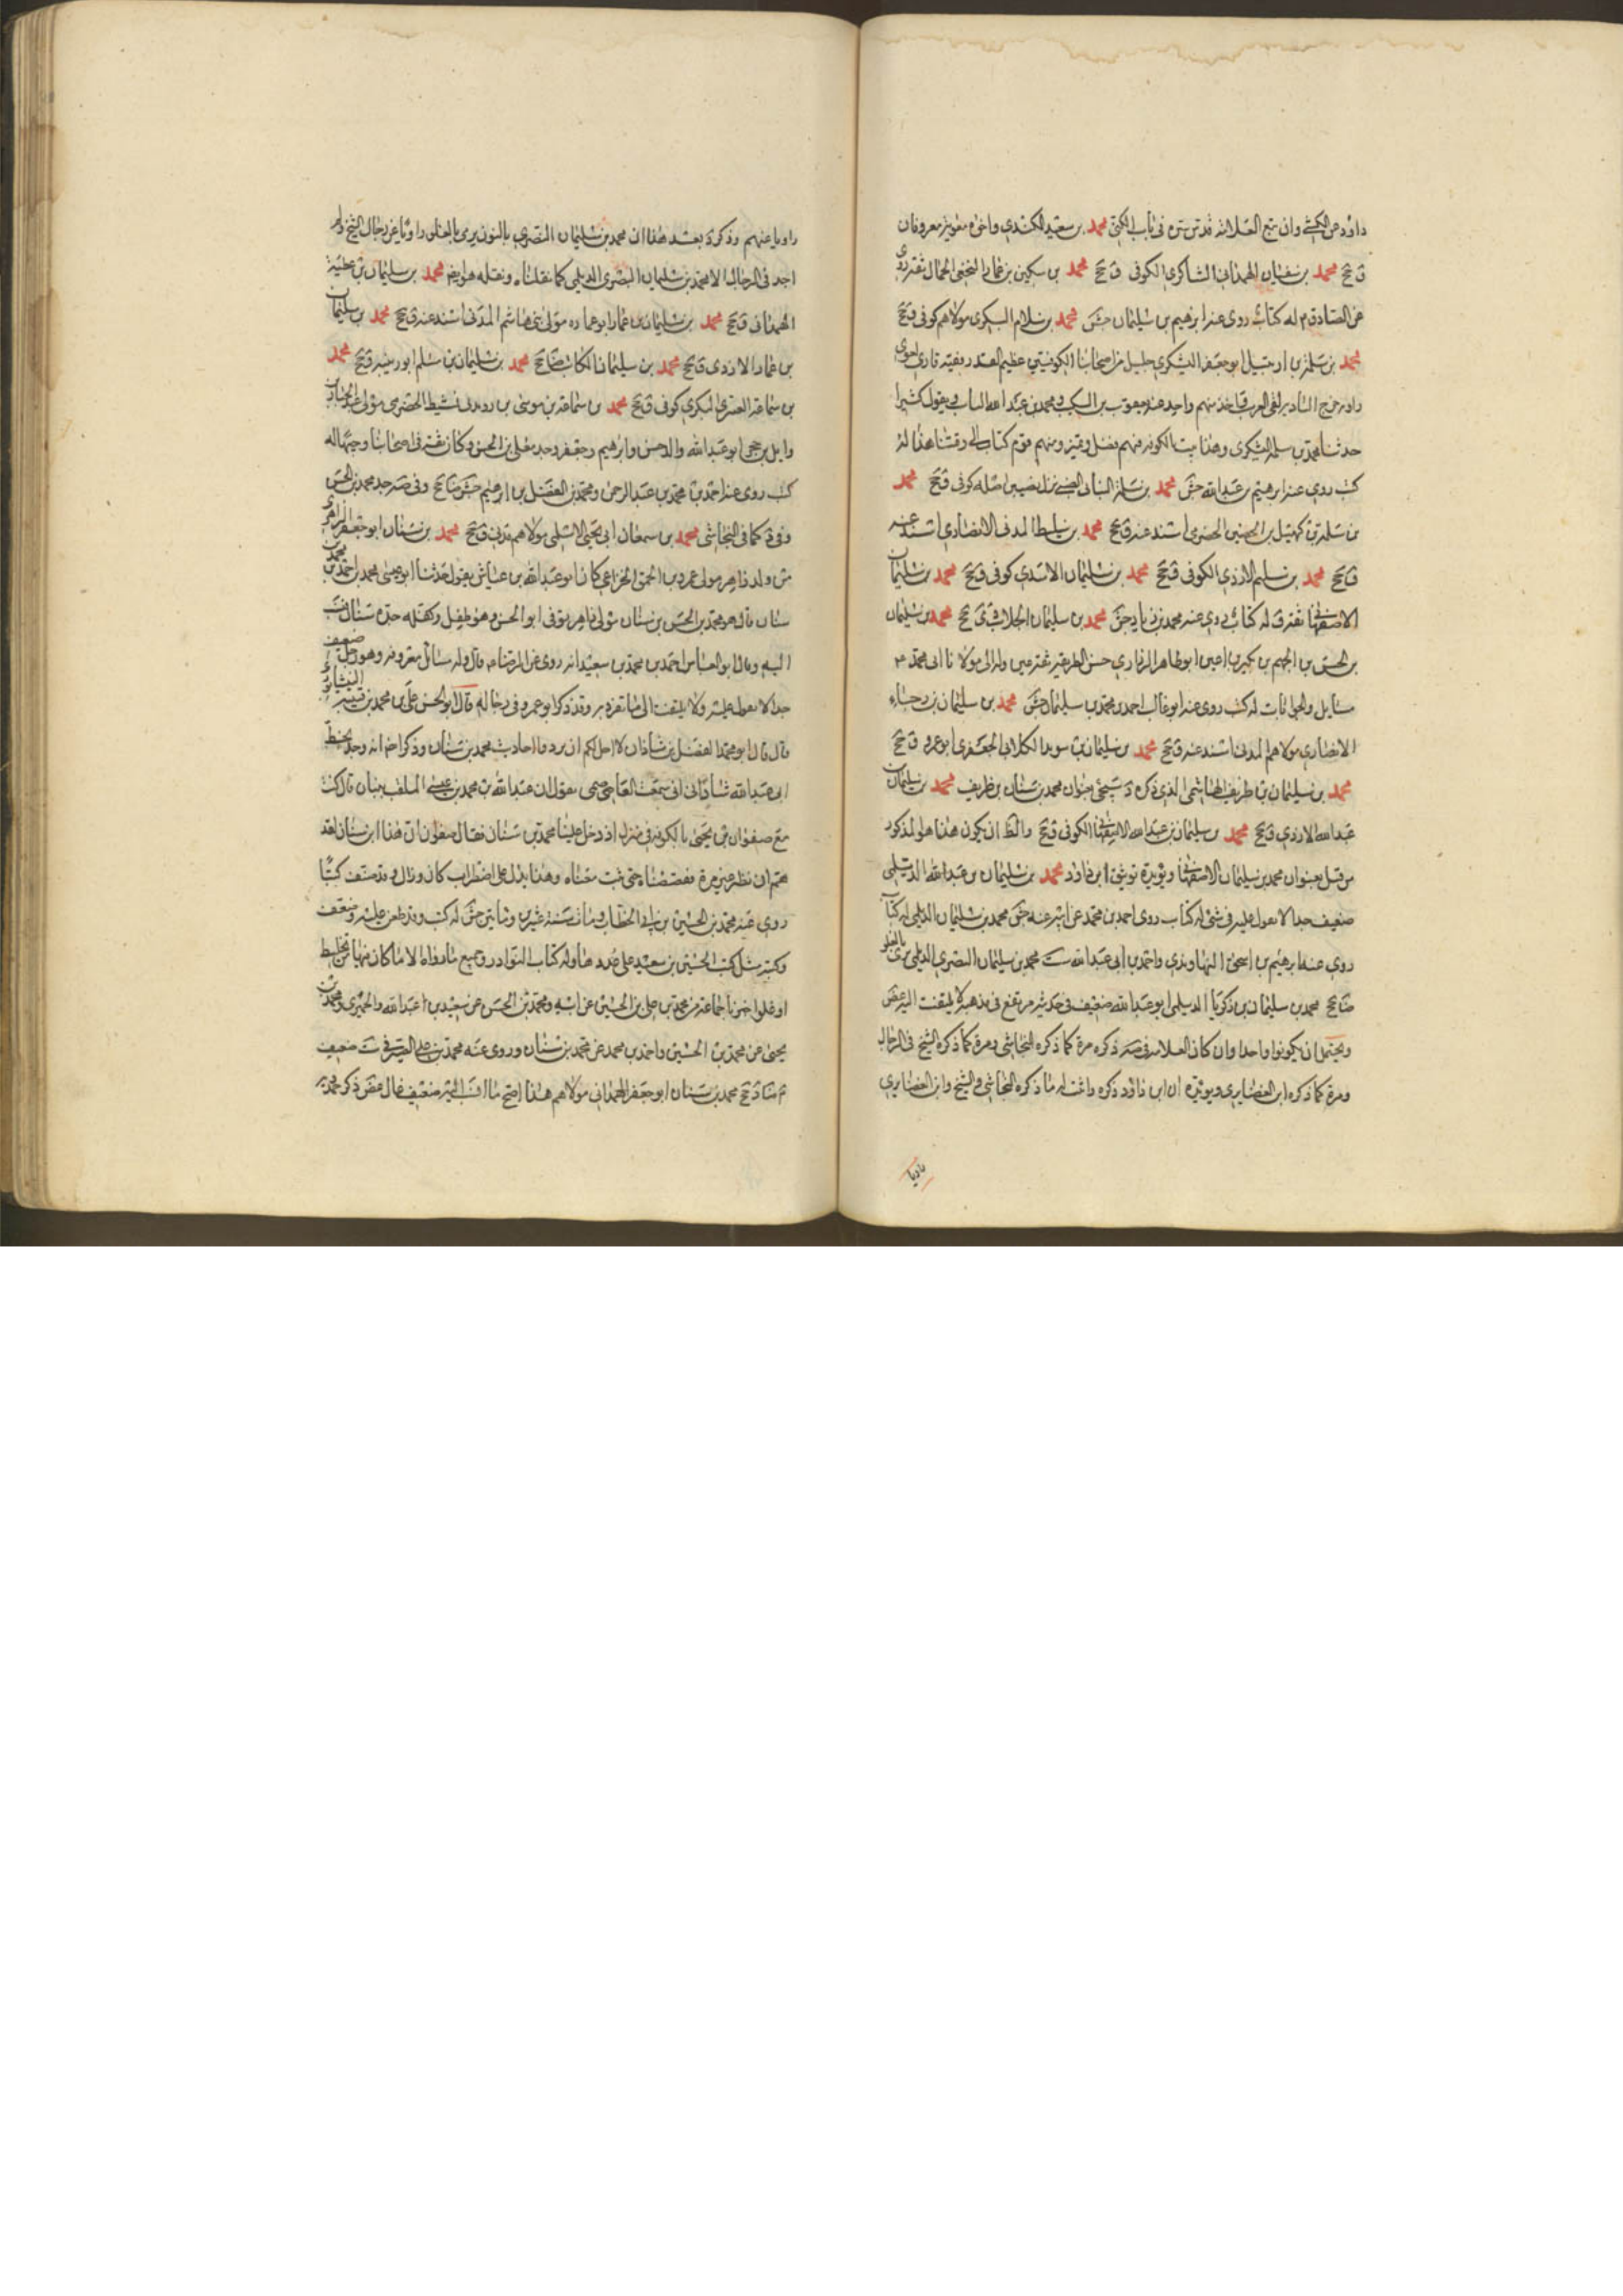 داود عن الكشي وان تبع العلامة قدس سره في باب الكنى محمد بن سعيد الكندي واخوه معوية معروفان
ق جخ محمد بن سفيان الهمداني الشاكري الكوفي ق جخ محمد بن سكين بن عمار النخعي الجمال ثقة روى
عن الصادق م له كتاب روى عنه ابرهيم بن سليمان جش محمد بن سلام البكري مولاهم كوفي ق جخ
محمد بن سلمة بن ارتبيل ابو جعفر اليشكري جليل من اصحابنا الكوفيين عظيم القدر فقيه قاري لغوي
راوية خرج البادية لقي العرب واخذ منهم واخذ عنه يعقوب بن السكيت ومحمد بن عبدالله الساب ويقول كثيرا
حدثنا محمد بن سلمة اليشكري وهذا بيت بالكوفة فيهم فضل وتميز ومنهم قوم كتاب الى وقتنا هذا له
كتب روى عنه ابرهيم بن عبدالله جش محمد بن سلمة البناني الضبي نزل نصيبين اصله كوفي ق جخ محمد
بن سلمة بن كهيل بن الحصين الحضرمي اسند عنه ق جخ محمد بن سليط المدني الانصاري اسند عنه
ق جخ محمد بن سليم الازدي الكوفي ق جخ محمد بن سليمان الاسدي كوفي ق جخ محمد بن سليمان
الاصفهاني ثقة ق له كتاب روى عنه محمد بن زياد جش محمد بن سليمان الجلاب ق جخ محمد بن سليمان
بن الحسن بن الجهم بن بكير بن اعين ابو طاهر الزراري حسن الطريقة ثقة عين وله الى مولانا ابي محمد م
مسايل والجوابات له كتب روى عنه ابو غالب احمد بن محمد بن سليمان جش محمد بن سليمان بن رجاء
الانصاري مولاهم المدني اسند عنه ق جخ محمد بن سليمان بن سويد الكلابي الجعفري ابو عمرو ق جخ
محمد بن سليمان بن طريف الهاشمي الذي ذكره د سيجئ بعنوان محمد بن سنان بن طريف محمد بن سليمان
عبدالله الازدي ق جخ محمد بن سليمان بن عبدالله الاصفهاني الكوفي ق جخ والظ ان يكون هذا هو المذكور
من قبل بعنوان محمد بن سليمان الاصفهاني ويؤيده توثيق ابن داود محمد بن سليمان بن عبدالله الديلمي
ضعيف جدا لا يعول عليه في شئ له كتاب روى احمد بن محمد عن ابيه عنه جش محمد بن سليمان الديلمي له كتاب
روى عنه ابرهيم بن اسحق النهاوندي واحمد بن ابي عبدالله ست محمد بن سليمان البصري الديلمي يرمى بالغلو
ضا جخ محمد بن سليمان بن زكريا الديلمي ابو عبدالله ضعيف في حديثه مرتفع في مذهبه لا يلتفت اليه غض
ويحتمل ان يكونوا واحدا وان كان العلامة في صه ذكره مرة كما ذكره النجاشي ومرة كما ذكره الشيخ في الرجال
ومرة كما ذكره ابن الغضايري ويؤيده ان ابن داود ذكره واحد له ما ذكره النجاشي والشيخ وابن الغضايري
راويا عنهم وذكر د بعد هذا ان محمد بن سليمان النصري بالنون يرمى بالغلو راويا عن رجال الشيخ ولم
اجد في الرجال الا محمد بن سليمان البصري الديلمي كما نقلناه ونقله هو ايضا محمد بن سليمان بن علية
الهمداني ق جخ محمد بن سليمان بن عمار ابو عمارة مولى بني هاشم المدني اسند عنه ق جخ محمد بن سليمان
بن عمار الازدي ق جخ محمد بن سليمان الكاتب ضا جخ محمد بن سليمان بن سلم ابو زينبة ق جخ محمد
بن سماعة العنزي البكري كوفي ق جخ محمد بن سماعة بن موسى بن رويد بن نشيط الحضرمي مولى عبد الجبار
وايل بن حجر ابو عبدالله والد الحسن وابرهيم وجعفر وجد معلى بن الحسن وكان ثقة في اصحابنا وجيها له
كتب روى عنه احمد بن محمد بن عبد الرحمن ومحمد بن الفضل بن ابرهيم جش ضا جخ وفي صه جد محمد بن الحسن
وفي د كما في النجاشي محمد بن سمعان ابي يحيى الاسلمي مولاهم مدني ق جخ محمد بن سنان ابو جعفر الزاهري
من ولد زاهر مولى عمرو بن الحمق الخزاعي كان ابو عبدالله بن عياش يقول حدثنا ابو عيسى محمد بن احمد بن محمد بن
سنان قال هو محمد بن الحسن بن سنان مولى زاهر توفي ابو الحسن وهو طفل وكفله جده سنان فنسب
اليه وقال ابو العباس احمد بن محمد بن سعيد انه روى عن الرضا م قال وله مسائل معروفة وهو رجل ضعيف
جدا لا يعول عليه ولا يلتفت الى ما تفرد به وقد ذكر ابو عمرو في رجاله قال ابو الحسن علي بن محمد بن قتيبة النيشابوري
قال قال ابو محمد الفضل بن شاذان لا احل لكم ان ترووا احاديث محمد بن سنان وذكر ايضا انه وجد بخط
ابي عبدالله شاذاني اني سمعت العاصمي يقول ان عبدالله بن محمد بن عيسى الملقب ببنان قال كنت
مع صفوان بن يحيى بالكوفة في منزل اذ دخل علينا محمد بن سنان فقال صفوان ان هذا ابن سنان لقد
هم ان يطير غير مرة فقصصناه حتى ثبت معناه وهذا يدل على اضطراب كان وزال وقد صنف كتبا
روى عنه محمد بن الحسين بن ابي الخطاب ومات سنة عشرين ومايتين جش له كتب وقد طعن عليه وضعف
وكتبه مثل كتب الحسين بن سعيد على عددها وله كتاب النوادر وجميع ما رواه الا ما كان فيها من تخليط
او غلو اخبرنا جماعة من محمد بن علي بن الحسين عن ابيه ومحمد بن الحسن عن سعيد بن عبدالله والحميري ومحمد بن
يحيى عن محمد بن الحسين واحمد بن محمد عن محمد بن سنان وروى عنه محمد بن علي الصيرفي ست ضعيف
م ضا د جخ محمد بن سنان ابو جعفر الهمداني مولاهم هذا اصح ما انتسب اليه ضعيف غال غض ذكر حمدويه
راويا